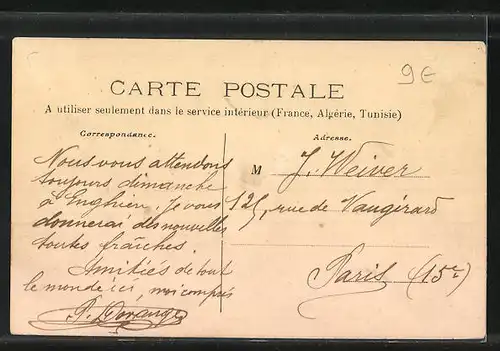 9€
CARTE POSTALE
A utiliser seulement dans le service intérieur (France, Algérie, Tunisie)
Correspondance.
Adresse.
Nous vous attendons
toujours dimanche
à Enghien. Je vous
donnerai des nouvelles
toutes fraîches.
Amitiés de tout
le monde ici, moi compris
M J. Weiver
125, rue de Vaugirard
Paris (15e)